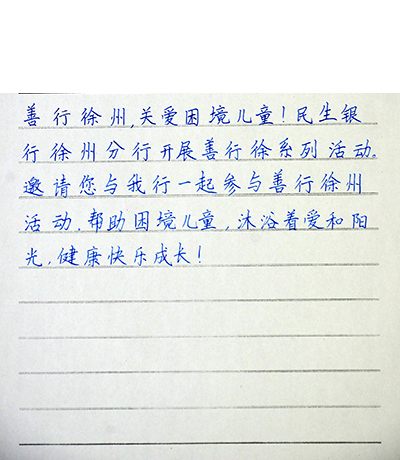 善行徐州,关爱困境儿童!民生银
行徐州分行开展善行徐系列活动。
邀请您与我行一起参与善行徐州
活动.帮助困境儿童,沐浴着爱和阳
光,健康快乐成长!